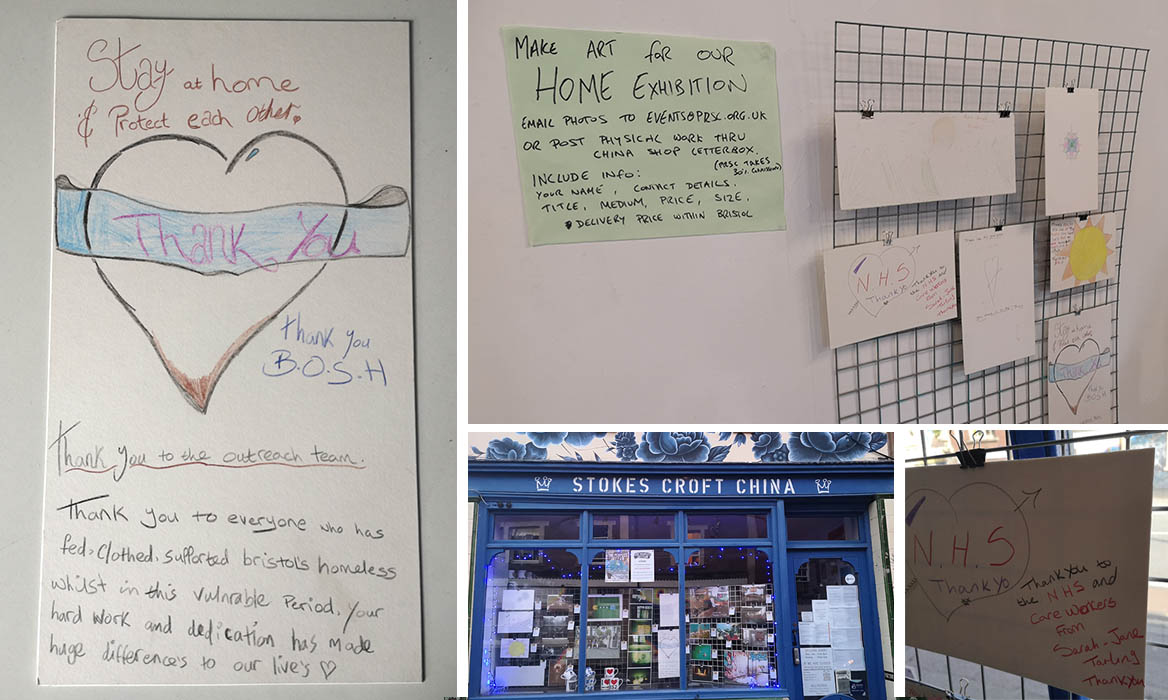 Stay at home
& Protect each Other.
Thank You
Thank you
B.O.S.H
Thank You to the outreach team.
Thank you to everyone who has
fed, clothed, supported bristol's homeless
whilst in this vulnrable Period, Your
hard work and dedication has made
huge difference's to our live's ♡
MAKE ART for OUR
HOME EXHIBITION
EMAIL PHOTOS TO EVENTS@PRSC.ORG.UK
OR POST PHYSICAL WORK THRU
CHINA SHOP LETTERBOX.
(PRSC TAKES
30% COMMISSION)
INCLUDE INFO:
YOUR NAME, CONTACT DETAILS.
TITLE, MEDIUM, PRICE, SIZE.
DELIVERY PRICE WITHIN BRISTOL
N.H.S
Thank Yo
Thank You to
the NHS and
Care Workers
From
Sarah-Jane
Tarling
Thankyou
Stay at home
THANK YOU
Thank You
BOSH
STOKES CROFT CHINA
N.H.S
Thank Yo
Thank You to
the NHS and
Care Workers
From
Sarah-Jane
Tarling
Thankyou